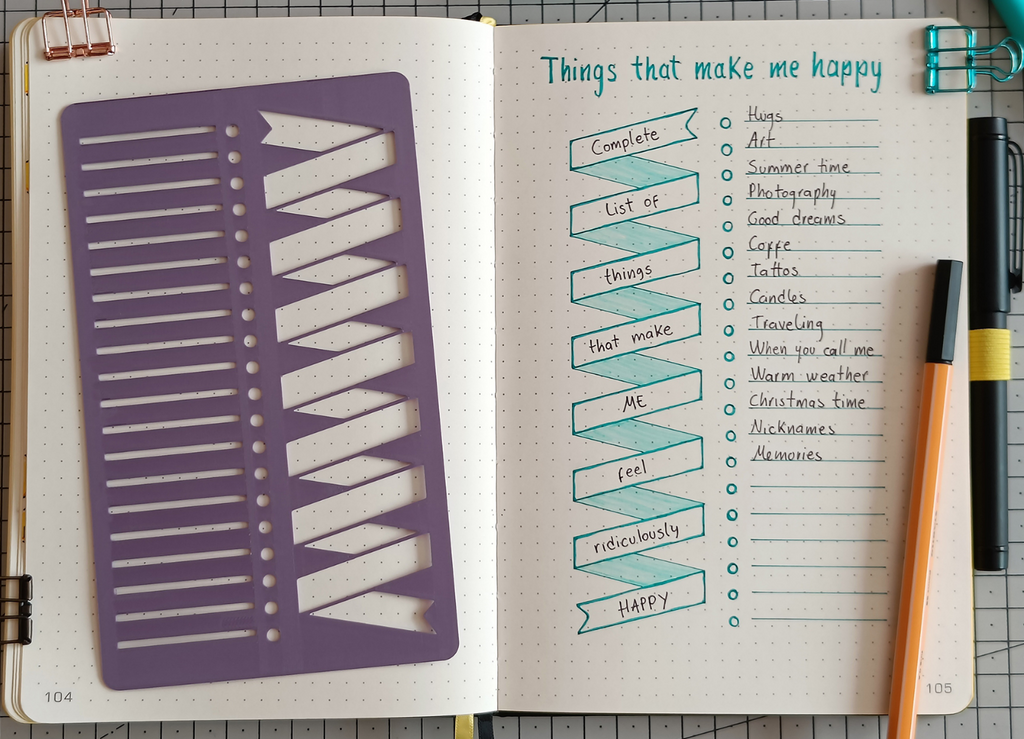 Things that make me happy
Complete
List of
things
that make
ME
feel
ridiculously
HAPPY
Hugs
Art
Summer time
Photography
Good dreams
Coffe
Tattos
Candles
Traveling
When you call me
Warm weather
Christmas time
Nicknames
Memories
104
105